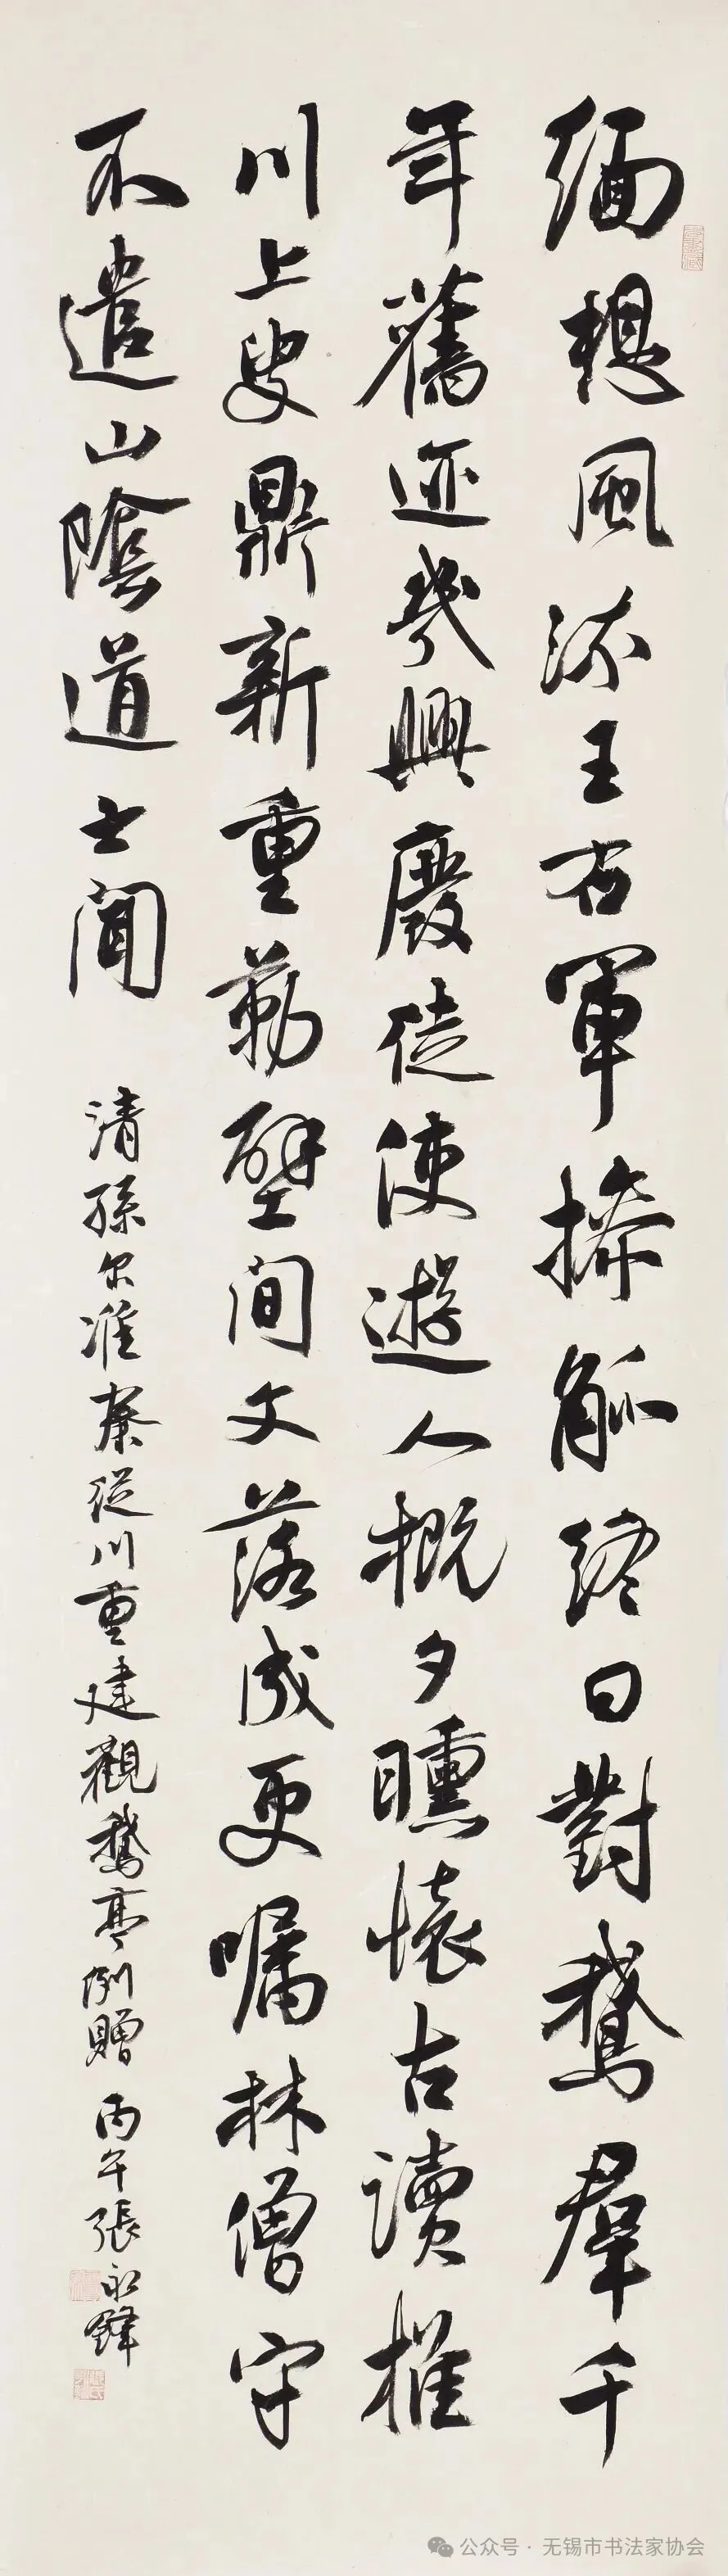 缅想風流王右軍捧觚终日對鵝羣千
年舊迹幾興廢徒使遊人概夕曛懷古讀推
川上叟鼎新重勒壁间文落成更嘱林僧守
不遣山陰道士闻
清孫尔准秦從川重建觀鵝亭例贈 丙午張永鋒
公众号·无锡市书法家协会